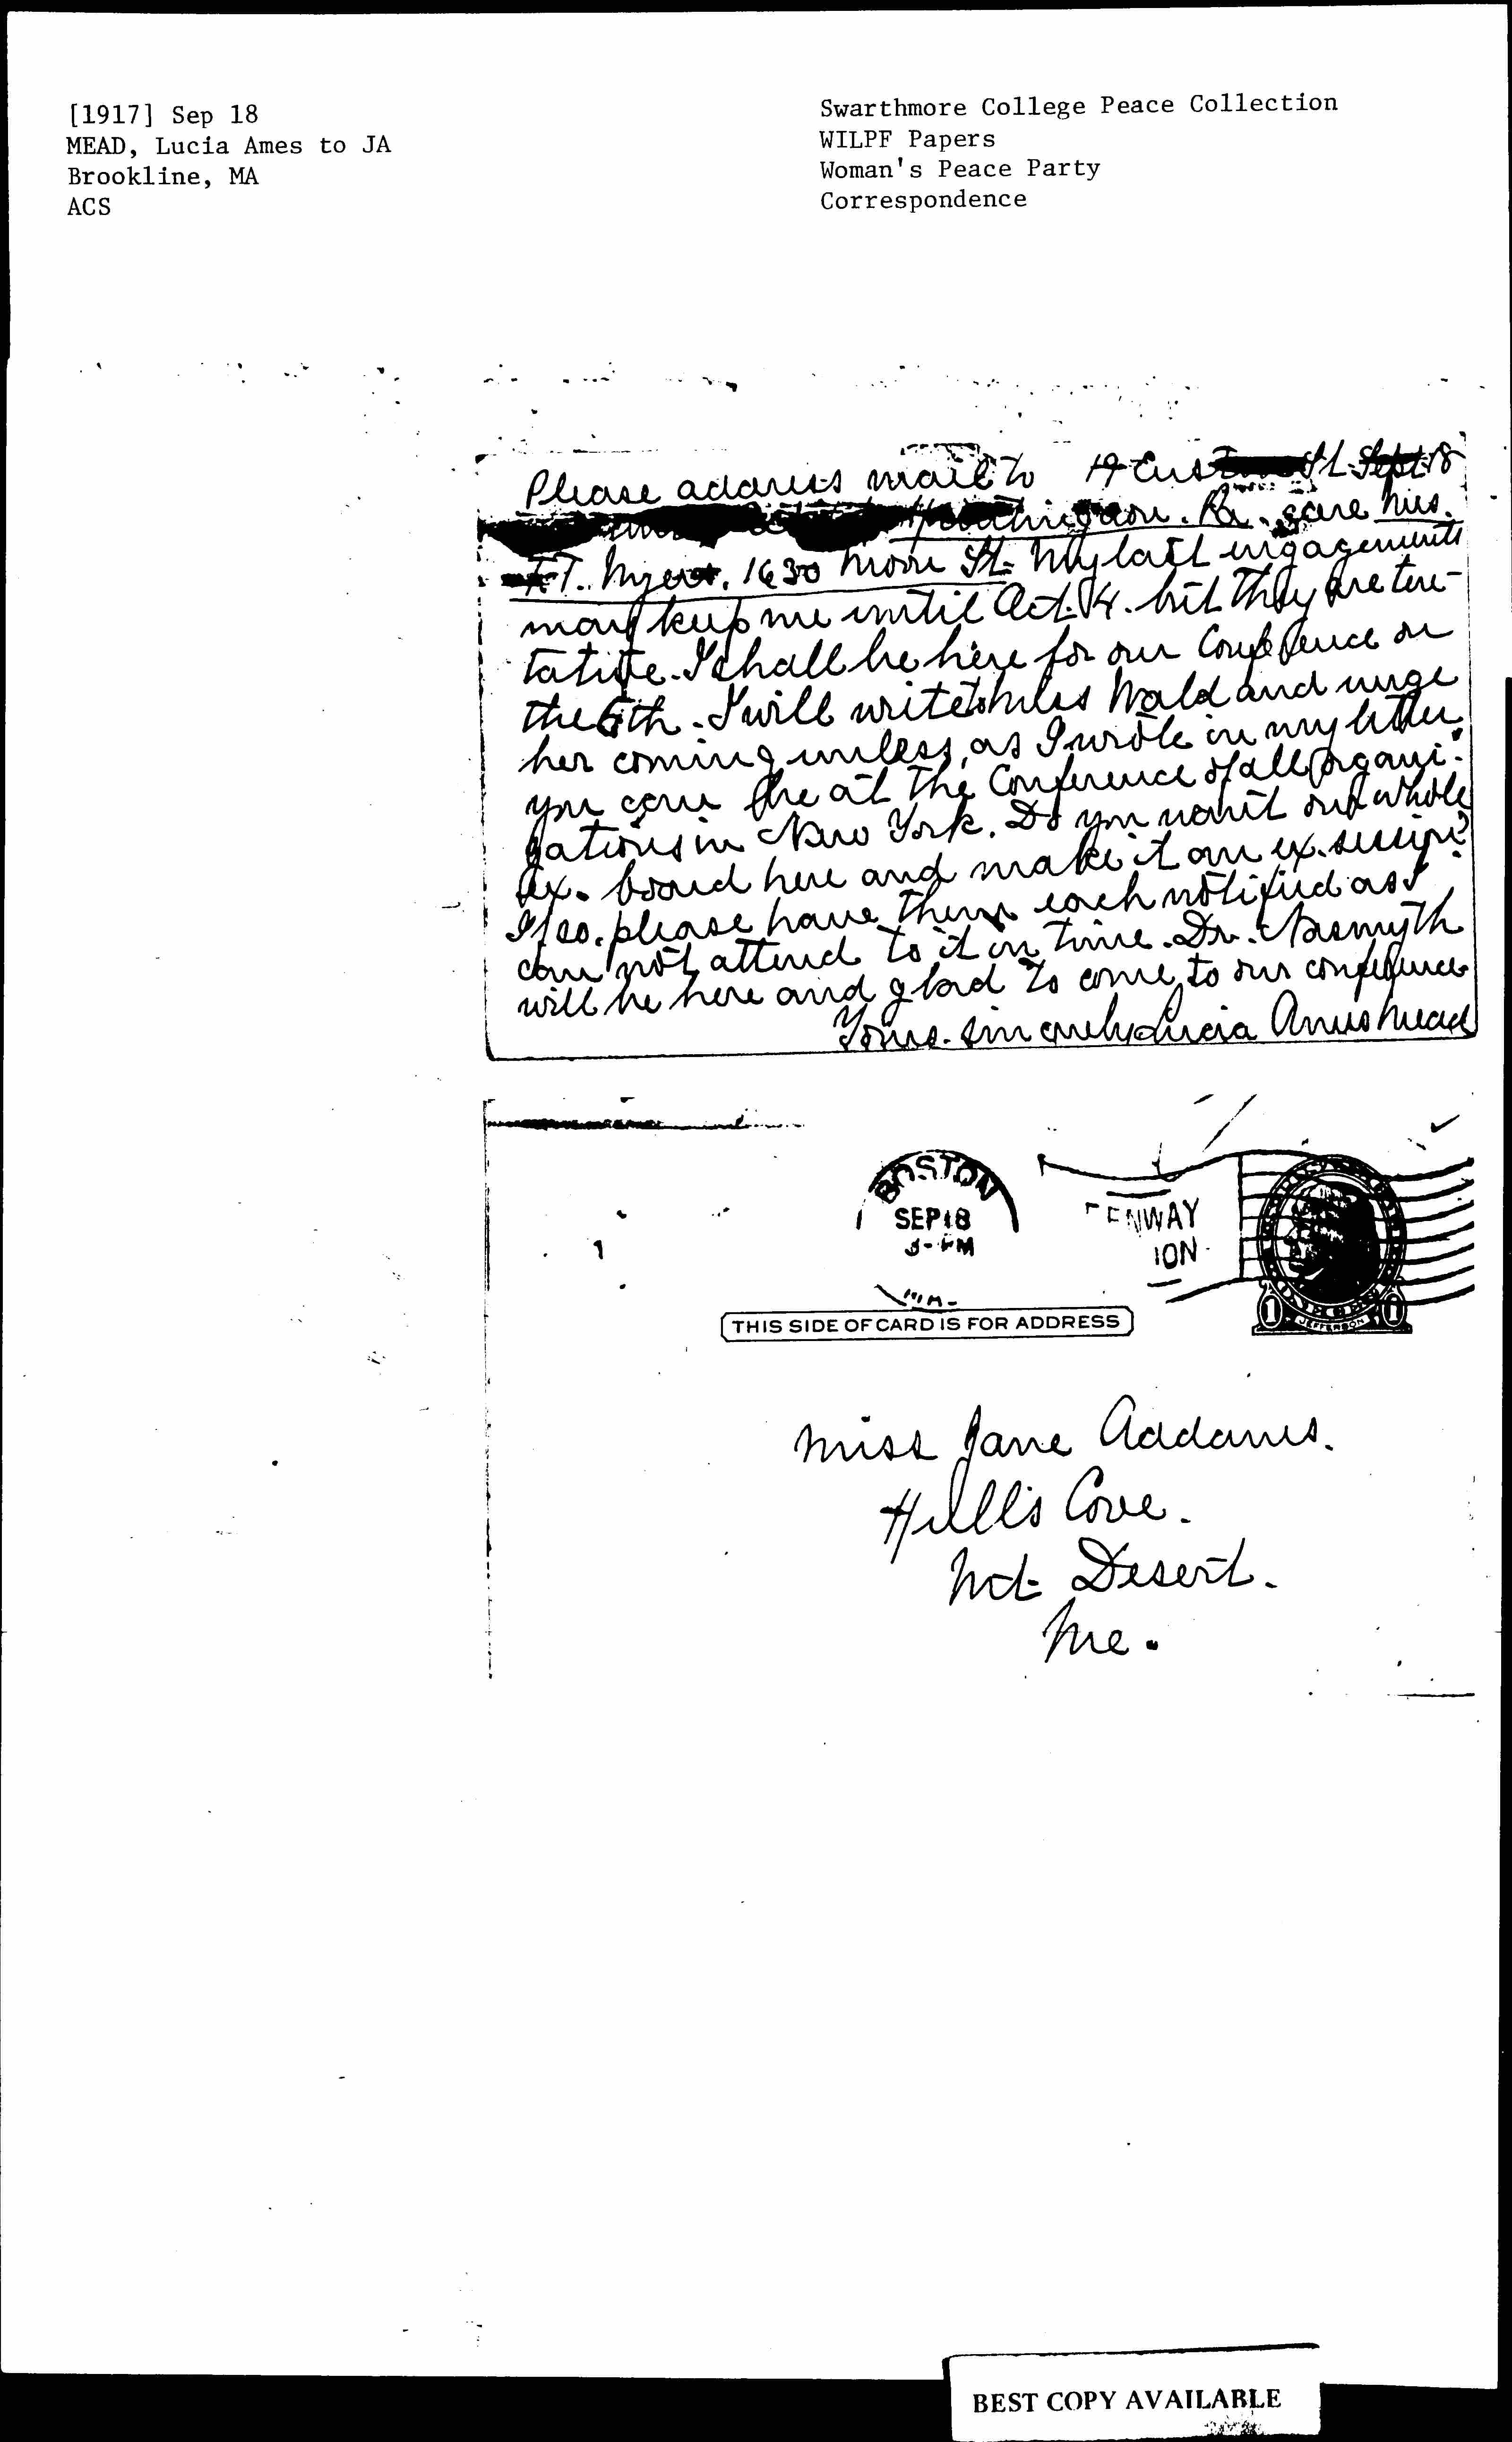 [1917] Sep 18
MEAD, Lucia Ames to JA
Brookline, MA
ACS
Swarthmore College Peace Collection
WILPF Papers
Woman's Peace Party
Correspondence
Please address mail to 19 Euston St. Sept 18
Huntingdon. Pa. care Mrs.
F.T. Myers. 1630 Moore St. My last engagements
may keep me until Oct. 4. but they are ten-
tative. I shall be here for our Conference on
the 6th. I will write to Miss Wald and urge
her coming unless, as I wrote in my letter,
you can be at the Conference of all organi-
zations in New York. Do you want our whole
Ex. board here and make it an ex. session?
If so. please have them each notified as I
can not attend to it in time. Dr. Nasmyth
will be here and glad to come to our conference
Yours. sincerely Lucia Ames Mead
BOSTON
SEP 18
PM
FENWAY
ION
THIS SIDE OF CARD IS FOR ADDRESS
1 JEFFERSON 1
Miss Jane Addams.
Hull's Cove.
Mt. Desert.
Me.
BEST COPY AVAILABLE